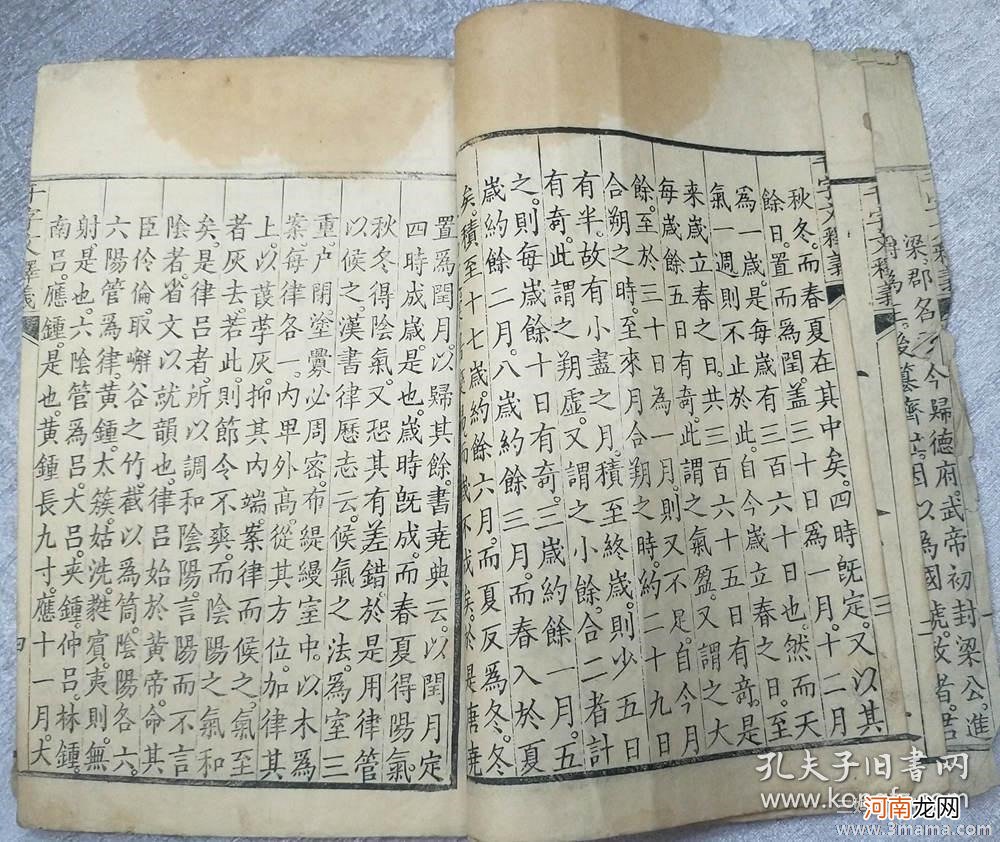 梁郡名今歸德府武帝初封梁公進
秋冬而春夏在其中矣。四時旣定。又以其
餘日。置而爲閏。盖三十日爲一月。十二月
爲一歲。是每歲有三百六十日也。然而天
氣一週。則不止於此。自今歲立春之日。至
來歲立春之日。共三百六十五日有竒。是
每歲餘五日有竒。此謂之氣盈。又謂之大
餘。至於三十日為一月。則又不足。自今月
合朔之時。至來月合朔之時。約二十九日
有半。故有小盡之月。積至終歲。則少五日
有竒。此謂之朔虛。又謂之小餘。合二者計
之。則每歲餘十日有竒。三歲約餘一月。五
歲約餘二月。八歲約餘三月。而春入於夏
矣。積至十七歲。約餘六月。而夏反爲冬。冬
置爲閏月。以歸其餘。書堯典云。以閏月定
四時成歲。是也。歲時旣成。而春夏得陽氣。
秋冬得陰氣。又恐其有差錯。於是用律管
以候之。漢書律歷志云。候氣之法。爲室三
重。户閉。塗釁必周。密布緹縵室中。以木爲
案。每律各一。内卑外高。從其方位。加律其
上。以葭莩灰。抑其内端。案律而候之。氣至
者灰去。若此。則節令不爽。而陰陽之氣和
矣。是律呂者。所以調和陰陽。言陽而不言
陰者。省文以就韻也。律呂始於黄帝。命其
臣伶倫。取嶰谷之竹。截以爲筒。陰陽各六。
六陽管爲律。黄鍾。太簇。姑洗。蕤賓。夷則。無
射。是也。六陰管爲呂。大呂。夾鍾。仲呂。林鍾。
南呂。應鍾。是也。黄鍾長九寸。應十一月。大
四
孔夫子旧書网
河南龙网
www.3mama.com